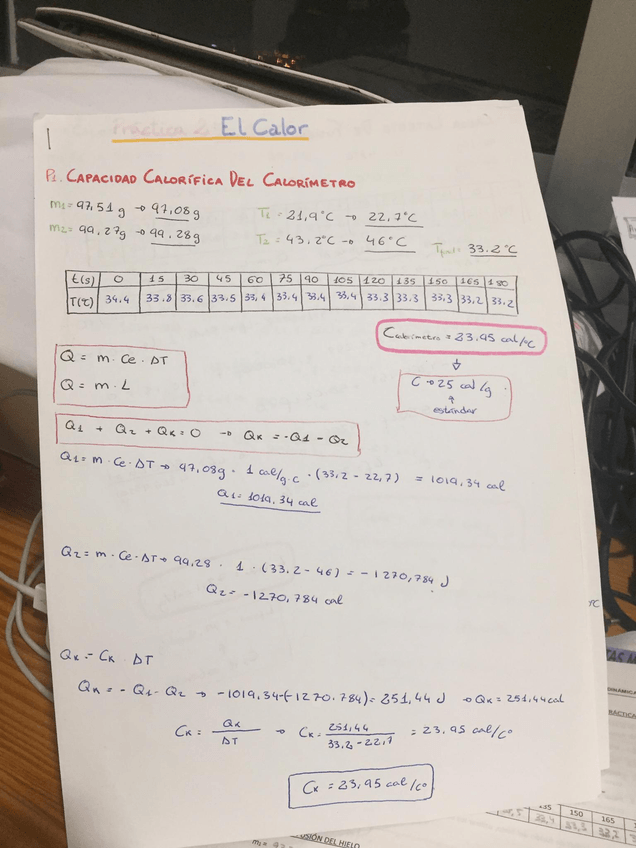 El Calor
P1. CAPACIDAD CALORÍFICA DEL CALORÍMETRO
m1 = 97,51 g → 97,08 g
T1 = 21,9°C → 22,7°C
m2 = 99,27g → 99,28g
T2 = 43,2°C → 46°C
33.2°C
t(s) 0 15 30 45 60 75 90 105 120 135 150 165 180
T(°C) 34.4 33.8 33.6 33.5 33,4 33.4 33,4 33,4 33.3 33.3 33,3 33,2 33.2
Ccalorímetro = 23,95 cal/°C
C → 25 cal/g.
estándar
Q = m · Ce · ΔT
Q = m · L
Q1 + Q2 + QK = 0 → QK = -Q1 - Q2
Q1 = m · Ce · ΔT → 97,08g · 1 cal/g·c · (33,2 - 22,7) = 1019,34 cal
Q1 = 1019,34 cal
Q2 = m · Ce · ΔT → 99,28 · 1 · (33.2 - 46) = -1270,784 J
Q2 = -1270,784 cal
QK = CK · ΔT
QK = - Q1 - Q2 → -1019,34-(-1270.784) = 251,44 J → QK = 251,44 cal
CK = QK/ΔT → CK = 251,44/33.2-22,7 = 23,95 cal/c°
CK = 23,95 cal/c°
YC
150 165
33,3
USIÓN DEL HIELO